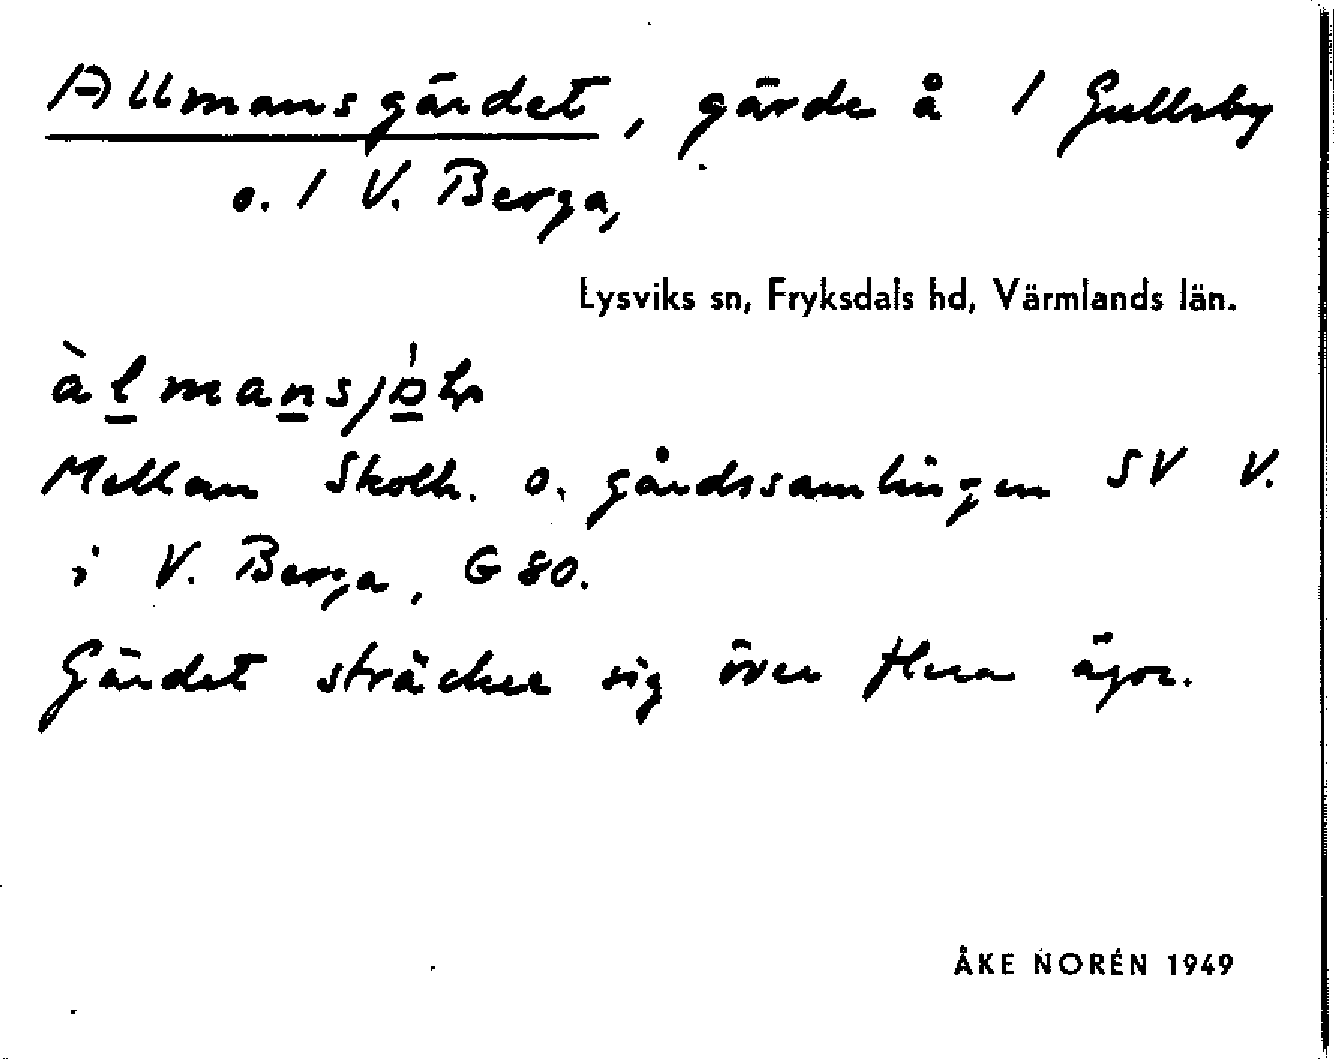 Allmansgärdet, gärde å 1 Gullsby
o. 1 V. Berga,
Lysviks sn, Fryksdals hd, Värmlands län.
Mellan Skolh. o. gårdssamlingen SV V.
i V. Berga, G 80.
Gärdet sträcker sig över flera ägor.
ÅKE NORÉN 1949